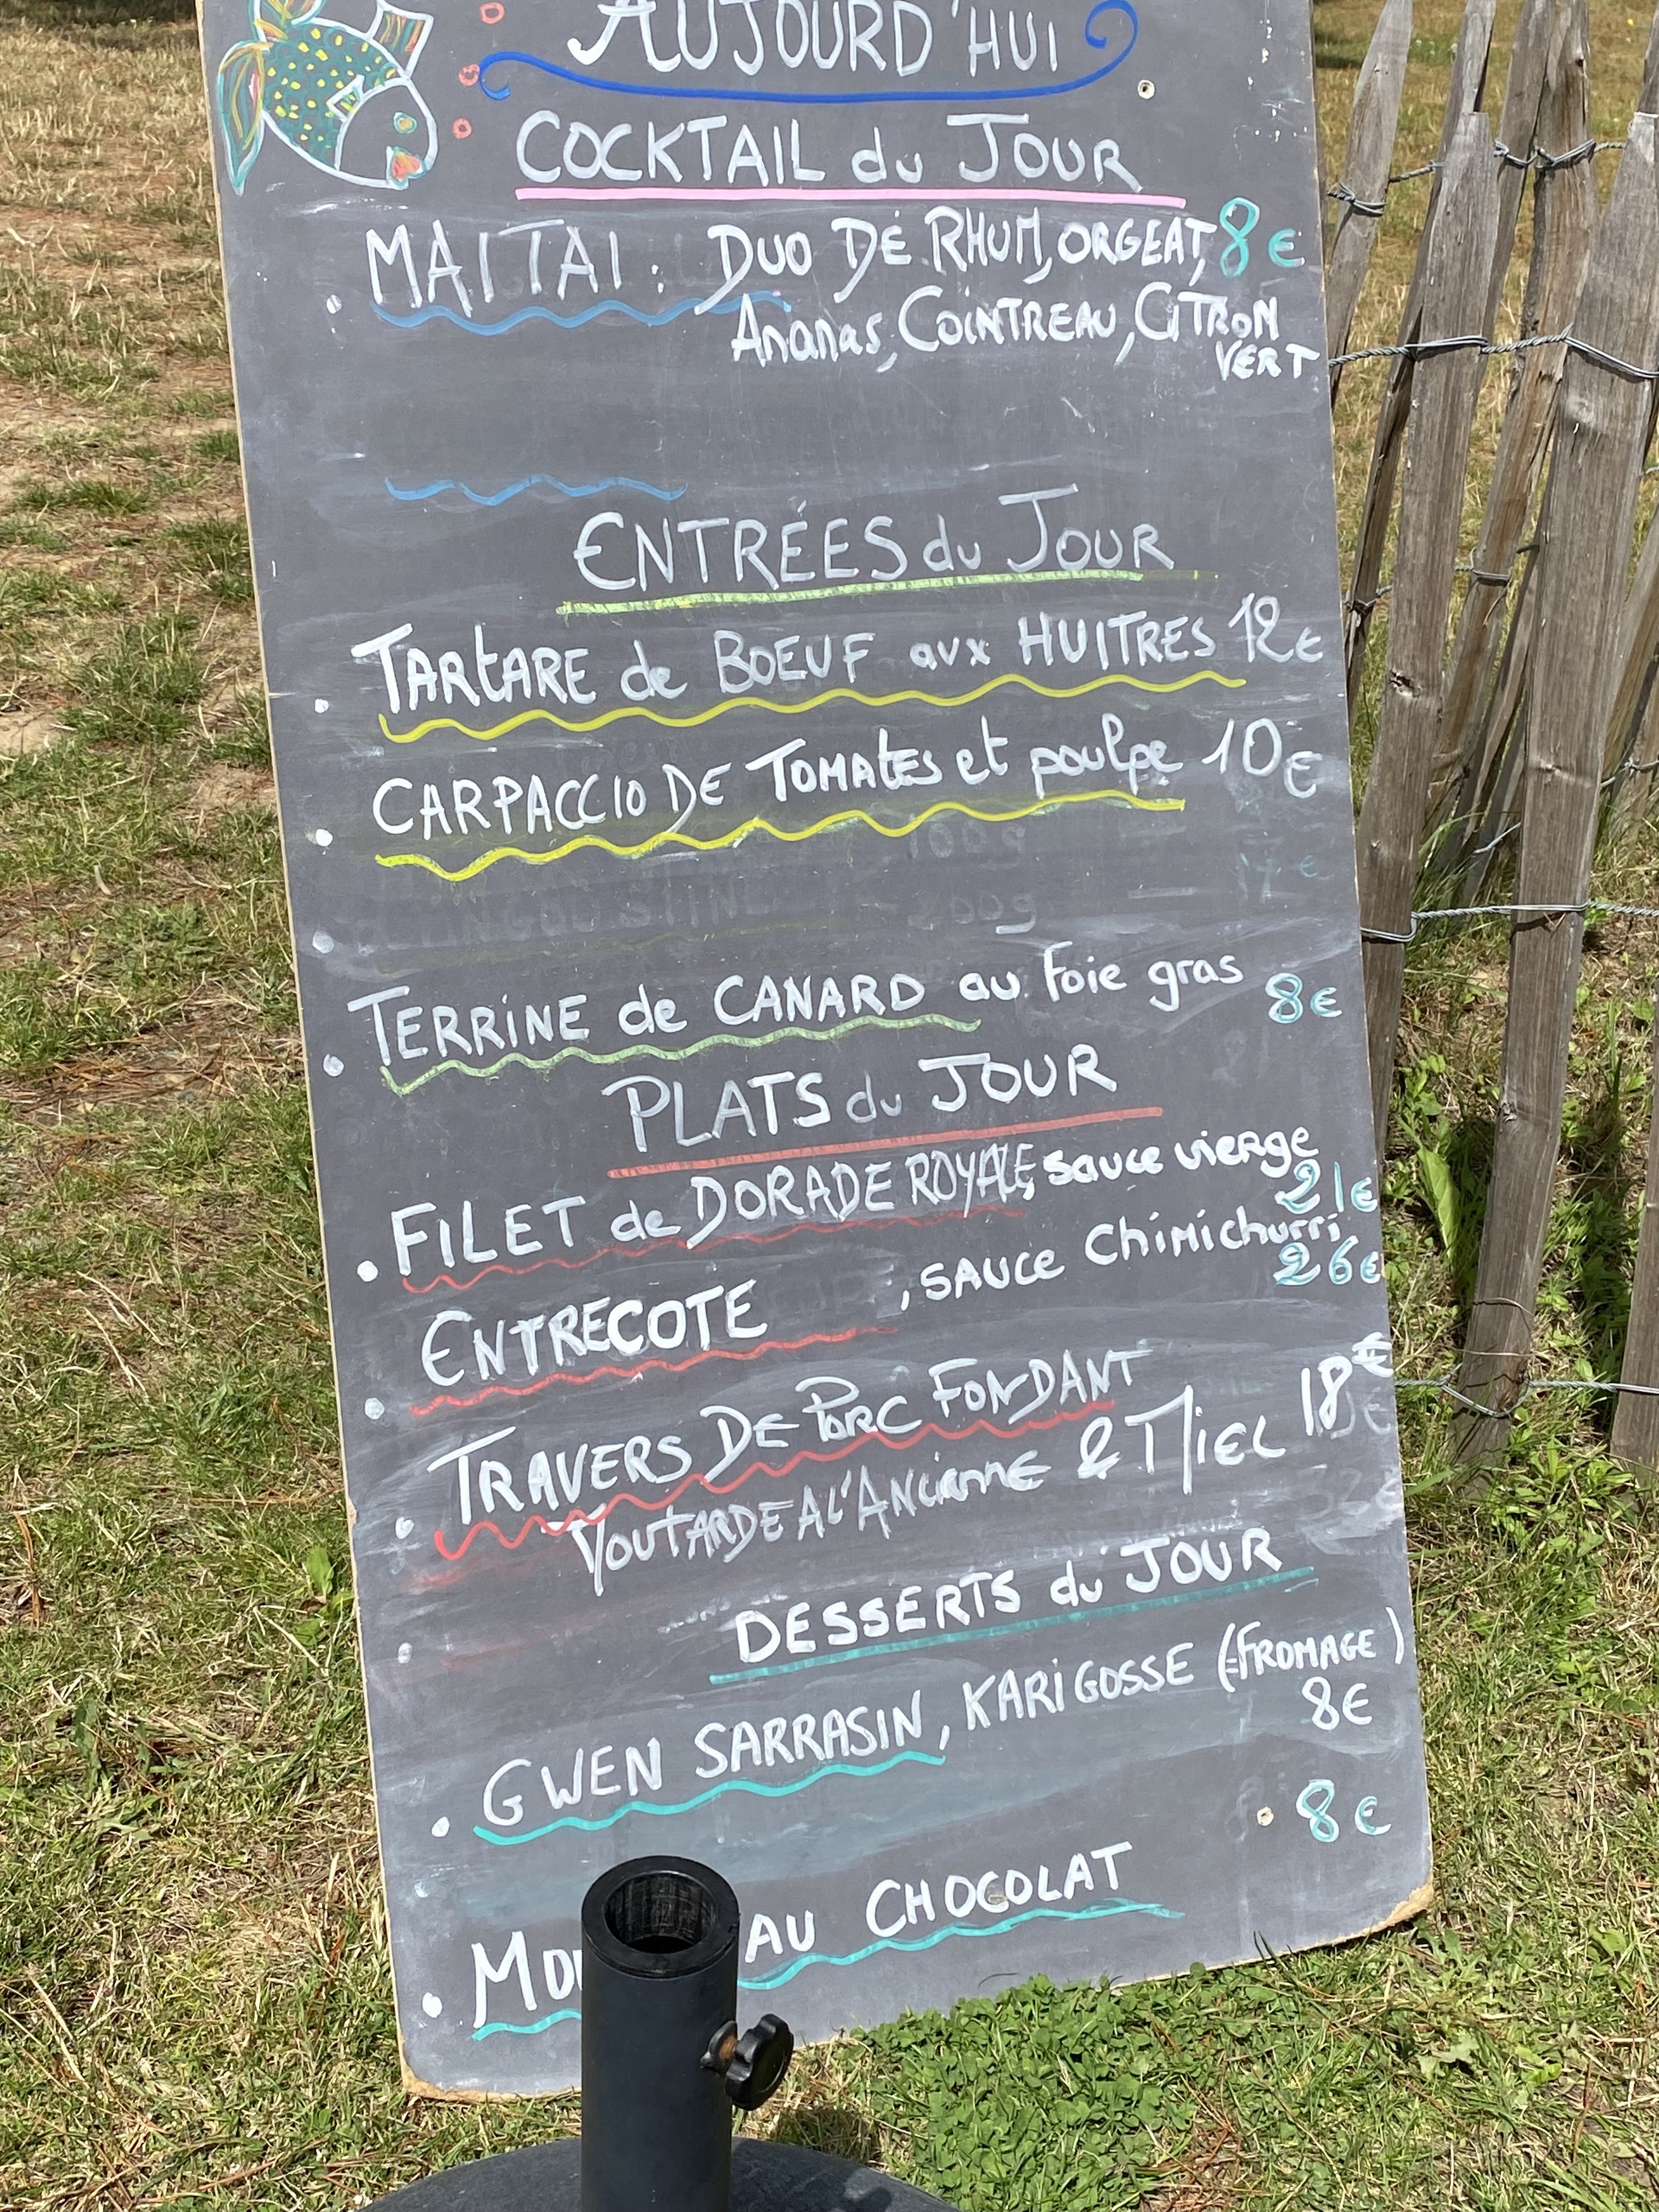 AUJOURD'HUI
COCKTAIL du JOUR
MAITAI : DUO DE RHUM, ORGEAT, 8€
Ananas, COINTREAU, CITRON
VERT
ENTRÉES du JOUR
TARTARE de BOEUF aux HUITRES 12€
CARPACCIO DE TOMATES et poulpe 10€
TERRINE de CANARD au Foie gras 8€
PLATS du JOUR
FILET de DORADE ROYALE, sauce vierge
21€
ENTRECOTE , SAUCE Chimichurri
26€
TRAVERS DE PORC FONDANT 18€
MOUTARDE A L'ANCIENNE & MIEL
DESSERTS du JOUR
GWEN SARRASIN, KARIGOSSE (FROMAGE)
8€
8€
AU CHOCOLAT